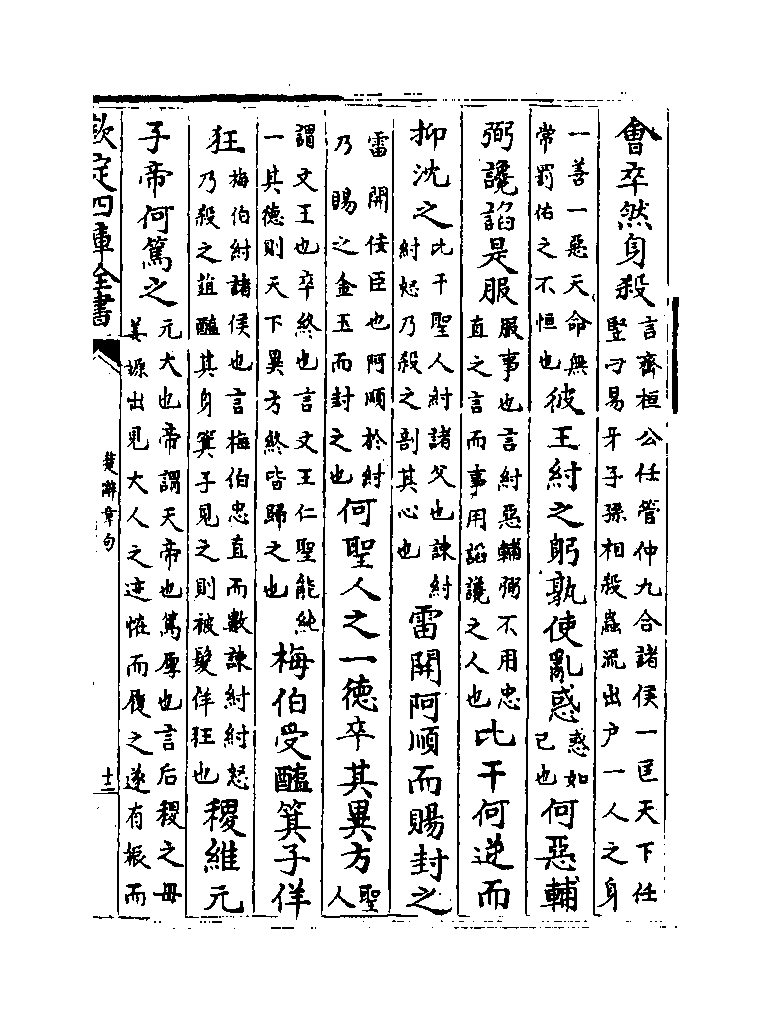 會卒然身殺言齊桓公任管仲九合諸侯一匡天下任
豎刁易牙子孫相殺蟲流出戶一人之身
一善一惡天命無
常罰佑之不恒也彼王紂之躬孰使亂惑惑如
己也何惡輔
弼讒諂是服服事也言紂惡輔弼不用忠
直之言而事用諂讒之人也比干何逆而
抑沈之比干聖人紂諸父也諫紂
紂怒乃殺之剖其心也雷開阿順而賜封之
雷開佞臣也阿順於紂
乃賜之金玉而封之也何聖人之一德卒其異方聖
人
謂文王也卒終也言文王仁聖能純
一其德則天下異方終皆歸之也梅伯受醢箕子佯
狂梅伯紂諸侯也言梅伯忠直而數諫紂紂怒
乃殺之菹醢其身箕子見之則被髮佯狂也稷維元
子帝何篤之元大也帝謂天帝也篤厚也言后稷之母
姜嫄出見大人之迹恠而履之遂有娠而
欽定四庫全書
楚辭章句
十二